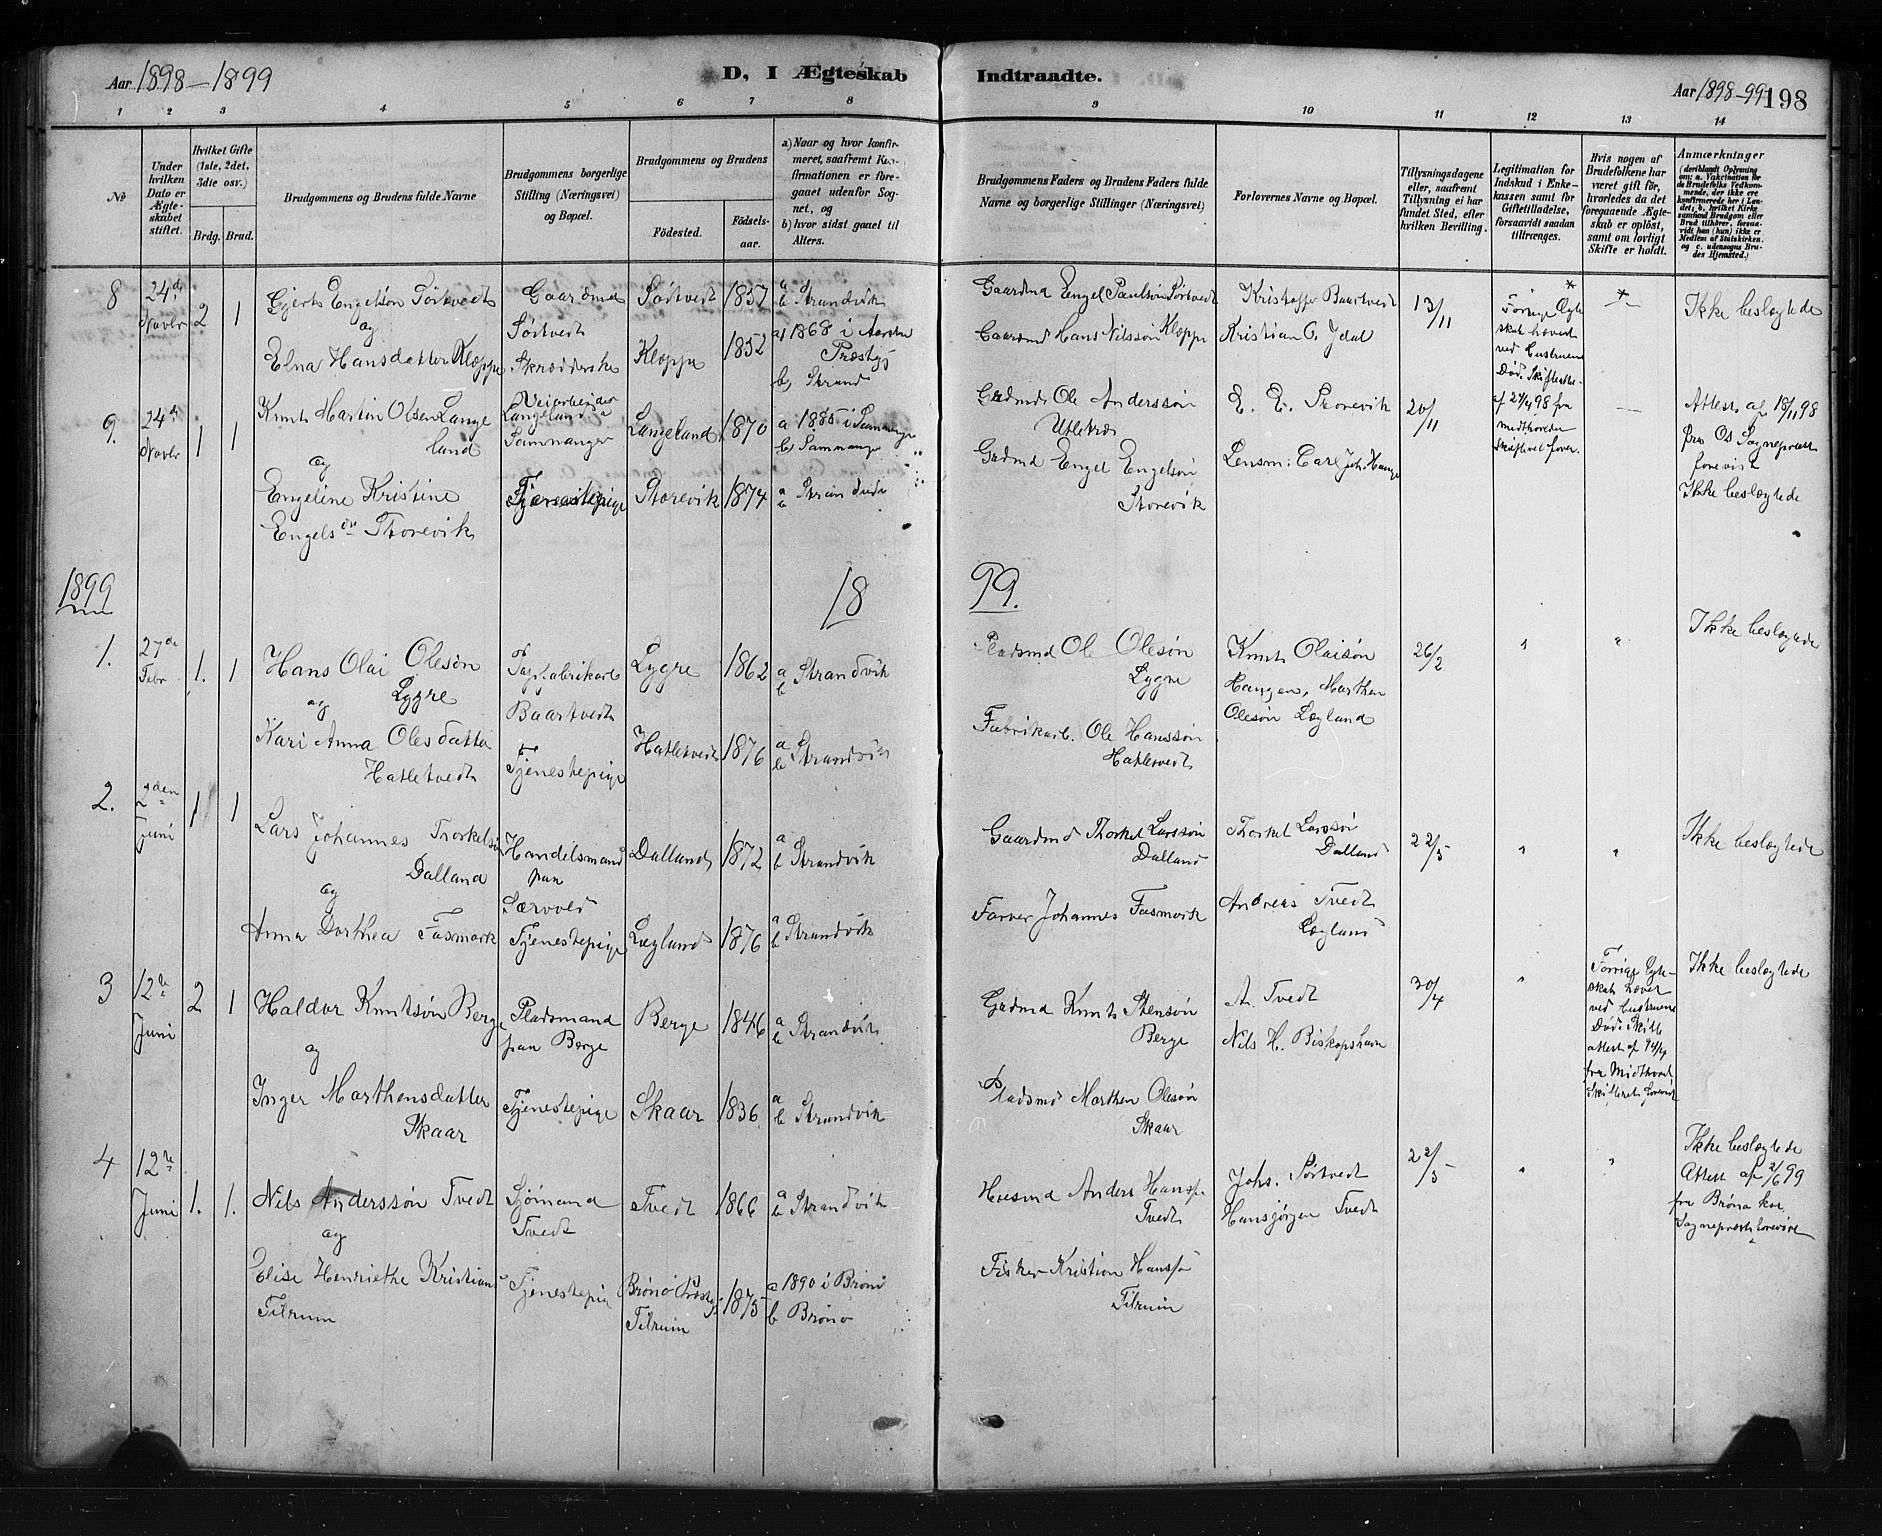 Aar 1898–1899
D, I Ægteskab
Indtraadte.
Aar 1898–99
198
1 2 3 4 5 6 7 8 9 10 11 12 13 14
No
Under hvilken Dato er Ægteskabet stiftet.
Hvilket Gifte (1ste, 2det, 3die osv.)
Brdg. Brud.
Brudgommens og Brudens fulde Navne
Brudgommens borgerlige Stilling (Næringsvei) og Bopæl.
Brudgommens og Brudens
Fødested. Fødselsaar.
a) Naar og hvor konfirmeret, saafremt Konfirmationen er foregaaet udenfor Sognet, og
b) hvor sidst gaaet til Alters.
Brudgommens Faders og Brudens Faders fulde Navne og borgerlige Stillinger (Næringsvei)
Forlovernes Navne og Bopæl.
Tillysningsdagene eller, saafremt Tillysning ei har fundet Sted, efter hvilken Bevilling.
Legitimation for Indskud i Enkekassen samt for Giftetilladelse, forsaavidt saadan tiltrænges.
Hvis nogen af Brudefolkene har været gift før, hvorledes da det foregaaende Ægteskab er opløst, samt om lovligt Skifte er holdt.
Anmærkninger (deriblandt Oplysning om: a. Vakcination for de Brudefolks Vedkommende, der ikke ere konfirmerede her i Landet; b. hvilket Kirkesamfund Brudgom eller Brud tilhører, forsaavidt han (hun) ikke er Medlem af Statskirken, og c. udensogns Brudes Hjemsted.)
8 24de Novbr 2 1
Gjert Engelsøn Sørtvedt Gaardmd Sørtvedt Sørtvedt 1857 a b Strandvik
Gaardmd Engel Paulsøn Sørtvedt Kristoffer Baartvedt 13/11 Ikke beslægtede
og
Elna Hansdatter Kleppe Skrædderske Kleppe 1852 a) 1868 i
Præstgj b) Strand
Gaardmd Hans Nilssøn Kleppe Kristian O.
Forrige Ægteskab hævet ved Hustruens Død. Skifteattest af 27/4 98 fra Midthordl. Skifteret forev.
9. 24de Novbr 1 1
Knut Martin Olsen Langeland Veiarbeider Langeland Samnanger Langeland 1870 a 1885 i Samnanger b) Samnanger
Grdmd Ole Anderssøn E. E. Storevik 20/11 — Attest af 18/11 98 fra Os Sognepræst forevist
og
Engeline Kristine Engelsdtr Storevik Tjenestepige Storevik 1874 a b Strandvik
Grdmd Engel Engelsøn Storevik Lensm: Carl Joh. Hauge
Ikke beslægtede
1899
18 99.
1. 27de Febr 1. 1
Hans Olai Olesøn Lygre Baartvedt Lygre 1862 a b Strandvik
Pladsmd Ole Olesøn Lygre Knut Olaisøn Haugen, Marthen Olesøn Lægland 26/2 " " Ikke beslægtede
og
Kari Anna Olesdatter Hatletvedt Tjenestepige Hatletvedt 1876 a b Strandvik
Fabrikarb. Ole Hanssøn Hatletvedt
2. 2den Juni 1 1
Lars Johannes Thorkelsøn Dalland Handelsmand paa Særvold Dalland 1872 a b Strandvik
Gaardmd Thorkel Larssøn Dalland Thorkel Larssøn Dalland 22/5 " " Ikke beslægtede
og
Anna Dorthea Fasmork Tjenestepige Lægland 1876 a b Strandvik
Farver Johannes Fasmork Andreas Tvedt Lægland
3 12te Juni 2 1
Haldor Knutsøn Berge Pladsmand paa Berge Berge 1846 a b Strandvik
Grdmd Knut Stensøn Berge A. Tvedt Nils H. Biskopshavn 30/4 " Forrige Ægteskab hævet ved Hustruens Død. Skifteattest af 14/4 fra Midthordl. Skifteret forevist Ikke beslægtede
og
Inger Marthensdatter Skaar Tjenestepige Skaar 1836 a b Strandvik
Pladsmd Marthen Olesøn Skaar
4 12te Juni 1. 1.
Nils Anderssøn Tvedt Sjømand Tvedt Tvedt 1866 a b Strandvik
Husmd Anders Hanss. Tvedt Johs. Sørtvedt Hansjørgen Tvedt 22/5 " " Ikke beslægtede Attest af 2/6 99 fra Brønø Sognepræst forevist
og
Elise Henriethe Kristians Tilrum Tjenestepige Brønø Præstgj Tilrum 1875 a 1890 i Brønø b Brønø
Fisker Kristian Hanss. Tilrum